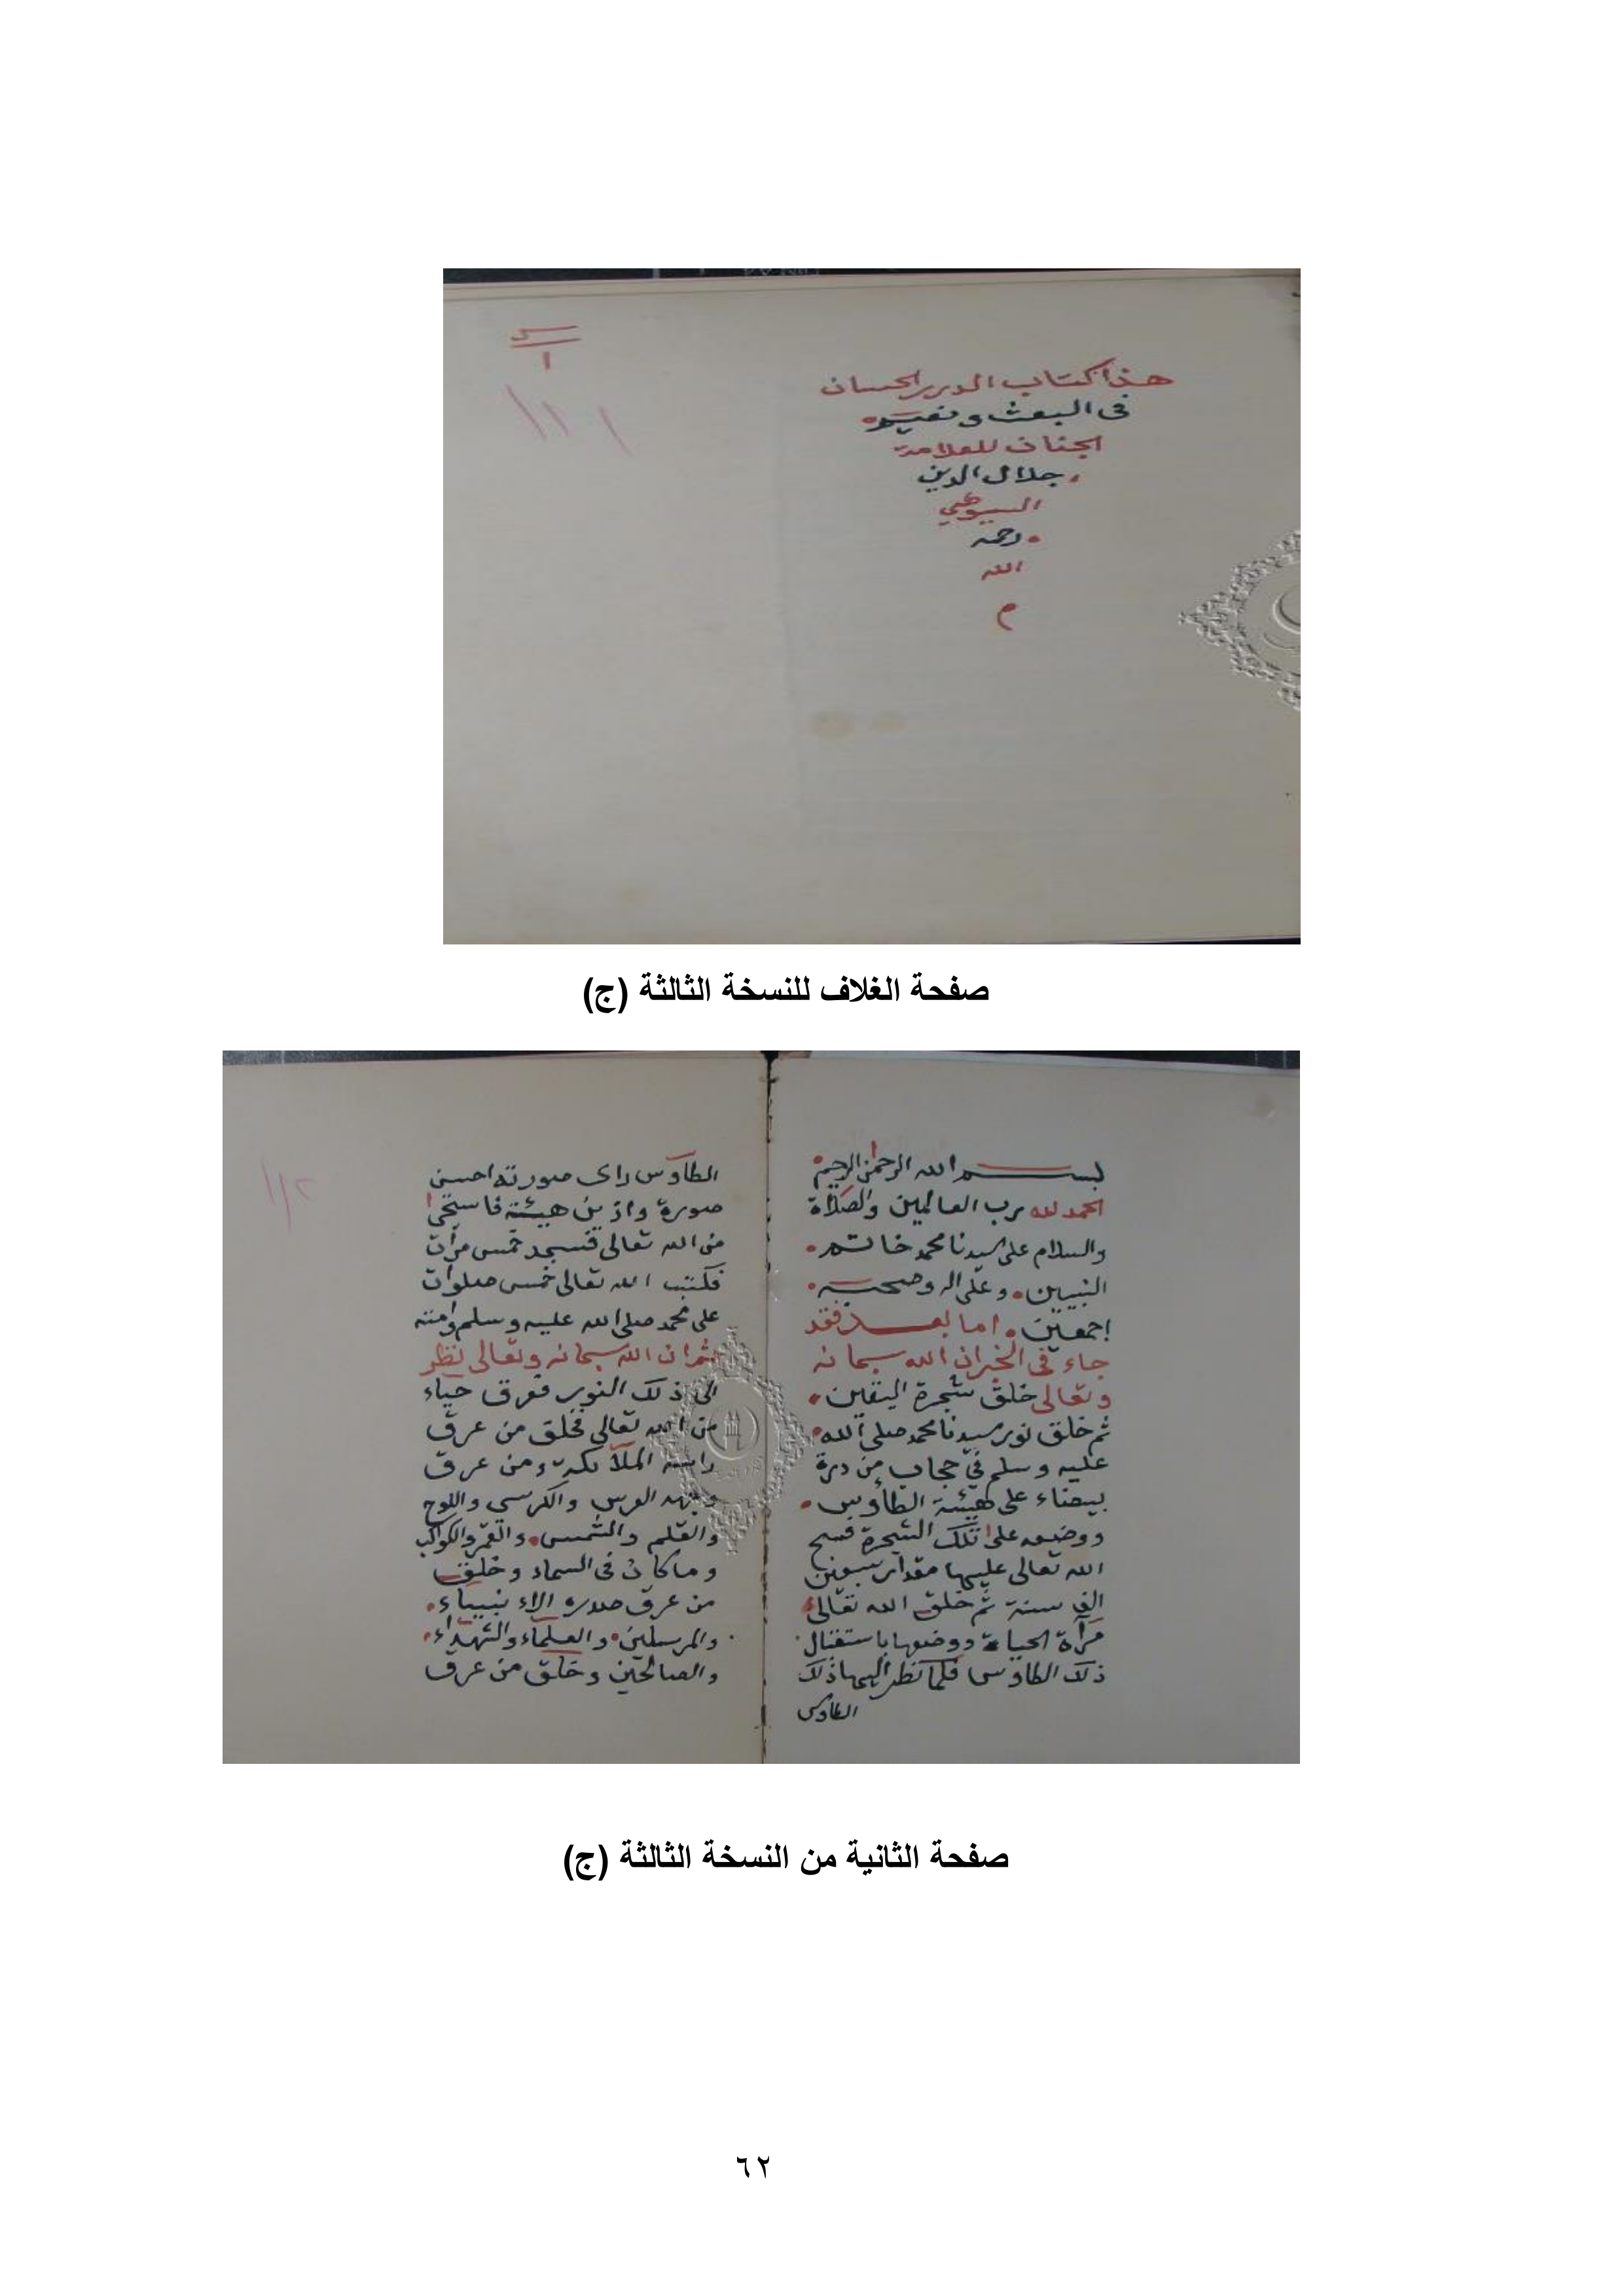 هذا كتاب الدرر الحسان
فى البعث ونعيم
الجنان للعلامة
جلال الدين
السيوطي
رحمه
الله
م
صفحة الغلاف للنسخة الثالثة (ج)
بسم الله الرحمن الرحيم
الحمد لله رب العالمين والصلاة
والسلام على سيدنا محمد خاتم
النبيين وعلى اله وصحبه
اجمعين اما بعد فقد
جاء في الخبر ان الله سبحانه
وتعالى خلق شجرة اليقين
ثم خلق نور سيدنا محمد صلى الله
عليه وسلم في حجاب من درة
بيضاء على هيئة الطاوس
ووضعه على تلك الشجرة فسبح
الله تعالى عليها مقدار سبعين
الف سنة ثم خلق الله تعالى
مرآة الحياة ووضعها باستقبال
ذلك الطاوس فلما نظر اليها ذلك
الطاوس
الطاوس راى صورته احسن
صورة وازين هيئة فاستحى
من الله تعالى فسجد خمس مرات
فكتب الله تعالى خمس صلوات
على محمد صلى الله عليه وسلم وامته
ثم ان الله سبحانه وتعالى نظر
الى ذلك النور فعرق حياء
من الله تعالى فخلق من عرق
راسه الملآئكة ومن عرق
وجهه العرس والكرسي واللوح
والقلم والشمس والقمر والكواكب
وما كان فى السماء وخلق
من عرق صدره الانبياء
والمرسلين والعلماء والشهداء
والصالحين وخلق من عرق
١١٢
صفحة الثانية من النسخة الثالثة (ج)
٦٢